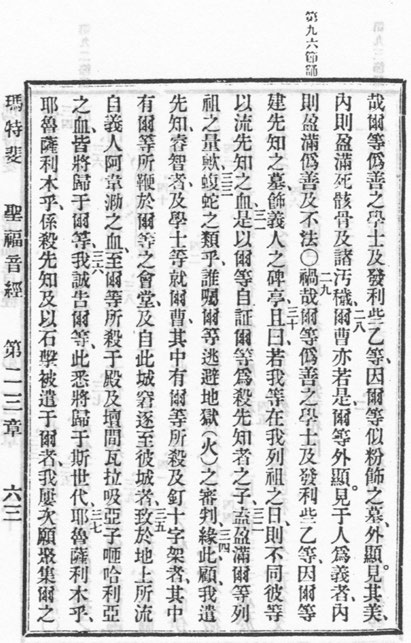 第九六節
哉爾等僞善之學士及發利些乙等、因爾等似粉飾之墓、外顯見其美、
內則盈滿死骸骨及諸汚穢、二八爾曹亦若是爾等外顯見于人爲義者、內
則盈滿僞善及不法〇二九禍哉爾等僞善之學士及發利些乙等、因爾等
建先知之墓、飾義人之碑亭、三十且曰若我等在我列祖之日、則不同彼等
以流先知之血、三一是以爾等自証爾等爲殺先知者之子、三二盍盈滿爾等列
祖之量歟、三三蝮蛇之類乎誰囑爾等逃避地獄(火)之審判、三四緣此顧我遣
先知、睿智者、及學士等就爾曹、其中有爾等所殺及釘十字架者、其中
有爾等所鞭於爾等之會堂、及自此城窘逐至彼城者、三五致於地上所流
自義人阿韋泐之血、至爾等所殺于殿及壇間瓦拉吸亞子咂哈利亞
之血皆將歸于爾等、三六我誠告爾等、此悉將歸于斯世代、三七耶魯薩利木乎、
耶魯薩利木乎、係殺先知及以石擊被遣于爾者、我屢次願聚集爾之
瑪特斐 聖福音經 第二三章 六三